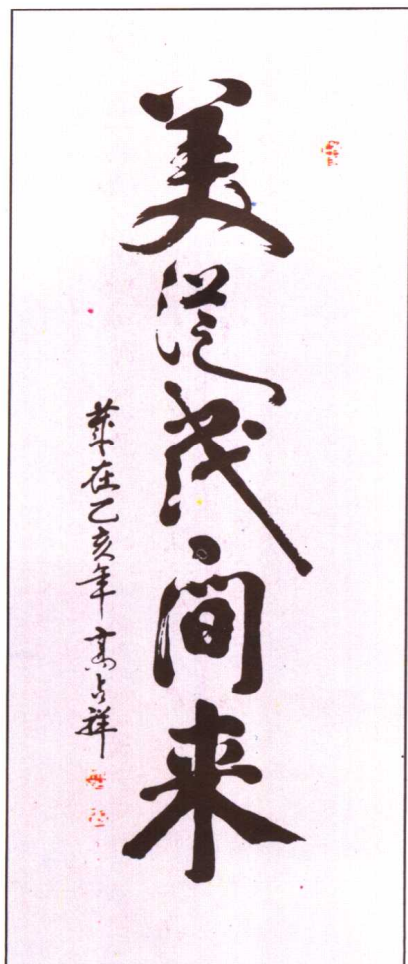 美從民间来
岁在乙亥年 高占祥